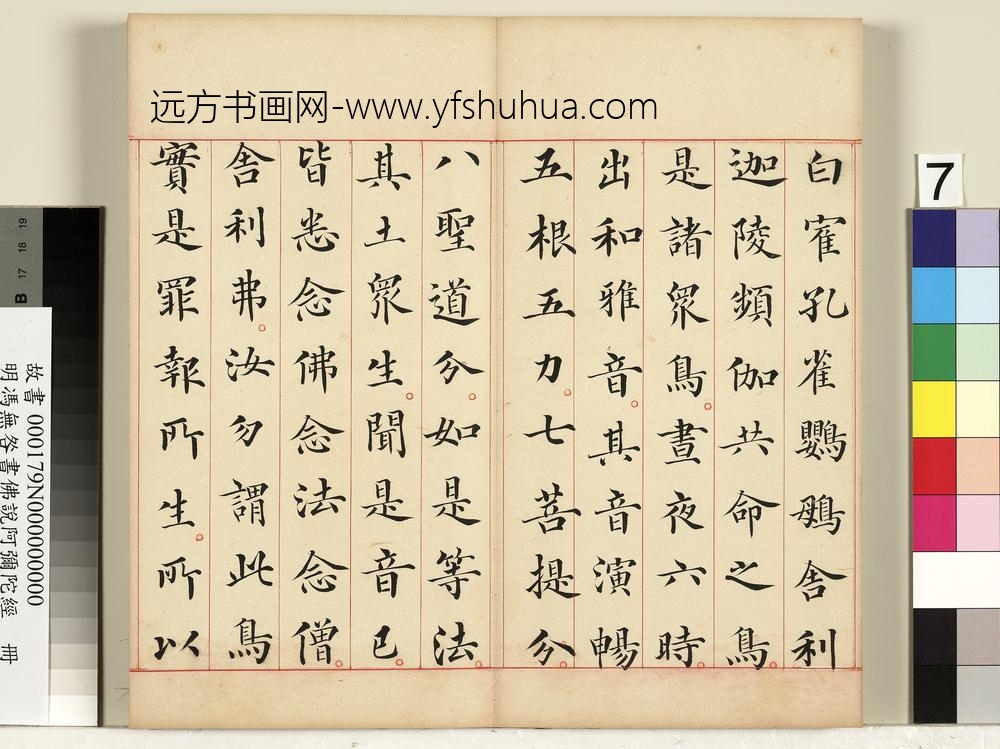 远方书画网-www.yfshuhua.com
白寉孔雀鸚䳇舍利
迦陵頻伽共命之鳥。
是諸眾鳥。晝夜六時。
出和雅音。其音演暢
五根五力。七菩提分。
八聖道分。如是等法。
其土眾生。聞是音已。
皆悉念佛念法念僧。
舍利弗。汝勿謂此鳥
實是罪報所生。所以
7
19
18
17
B
故書 000179N000000000
明馮無咎書佛說阿彌陀經 冊